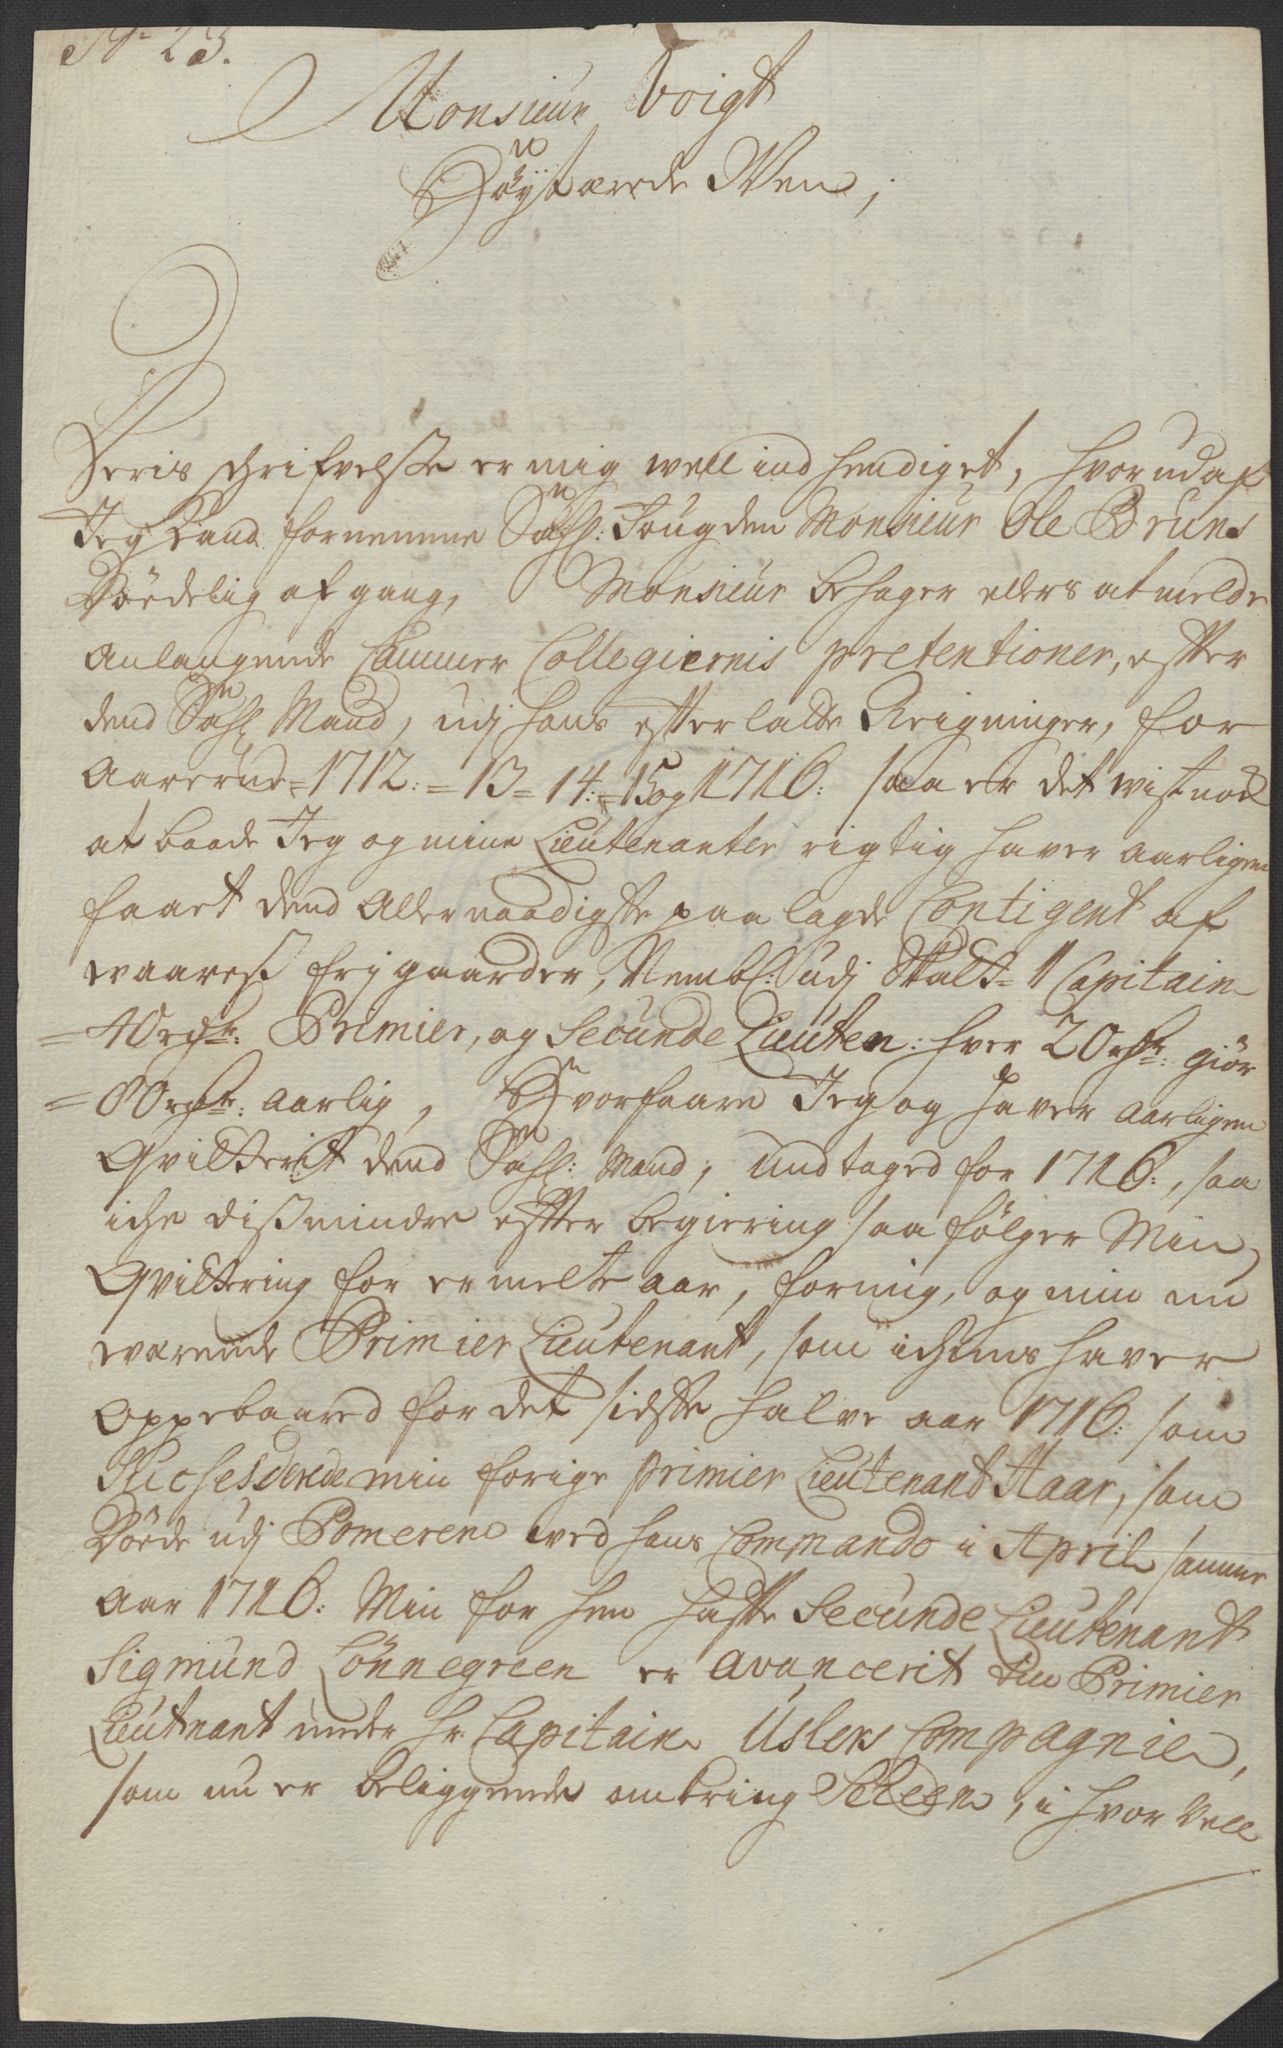 No 23.
Monsieur Voigt
Høytærede Wen,
Deris schrifvelsse er mig well ind hendiget, hvorudaf
Jeg kand fornemme Sahl: Fougden Monsieur Ole Bruns
Døedelig afgang, Monsieur behager ellers at melde
Anlangende Cammer Collegiernis pretentioner, efter
dend Sahl Mand, udj hans efterlatte Reigninger, for
Aarerne = 1712: = 13 = 14: = 15 og 1716: saa er det vist nok
at baade Jeg og mine Lieutenanter rigtig haver aarligen
faaet dend Allernaadigste paa lagde Contigent af
woaress frj gaarder, Nembl: udj Skatt = 1 Capitain
= 40 rdr: Premier, og Secunde Lieuten: hver 20 rdr: giør
= 80 rdr: aarlig, Hvorfaare Jeg og haver aarligen
Qvitterit dend Sahl: Mand, undtaged for 1716:, saa
iche dissmindre efter begiering saa følger Min
Qvittering for ermelte aar, for mig, og min nu
werende Primier Lieutenant, som ichuns haver
Oppebaared for det sidste halve aar 1716: som
Suchesderede min forige primier Lieutenant Staar, som
Døede udj Pomeren wed hans Commando i April samme
Aar 1716: Min for hen hafte Secunde Lieutenant
Sigmund Lønnegreen er avancerit till Primier
Lieutnant under Hr Capitain Uslers Compagnie,
som nu er beliggende omkring Scheen, i hvor vell